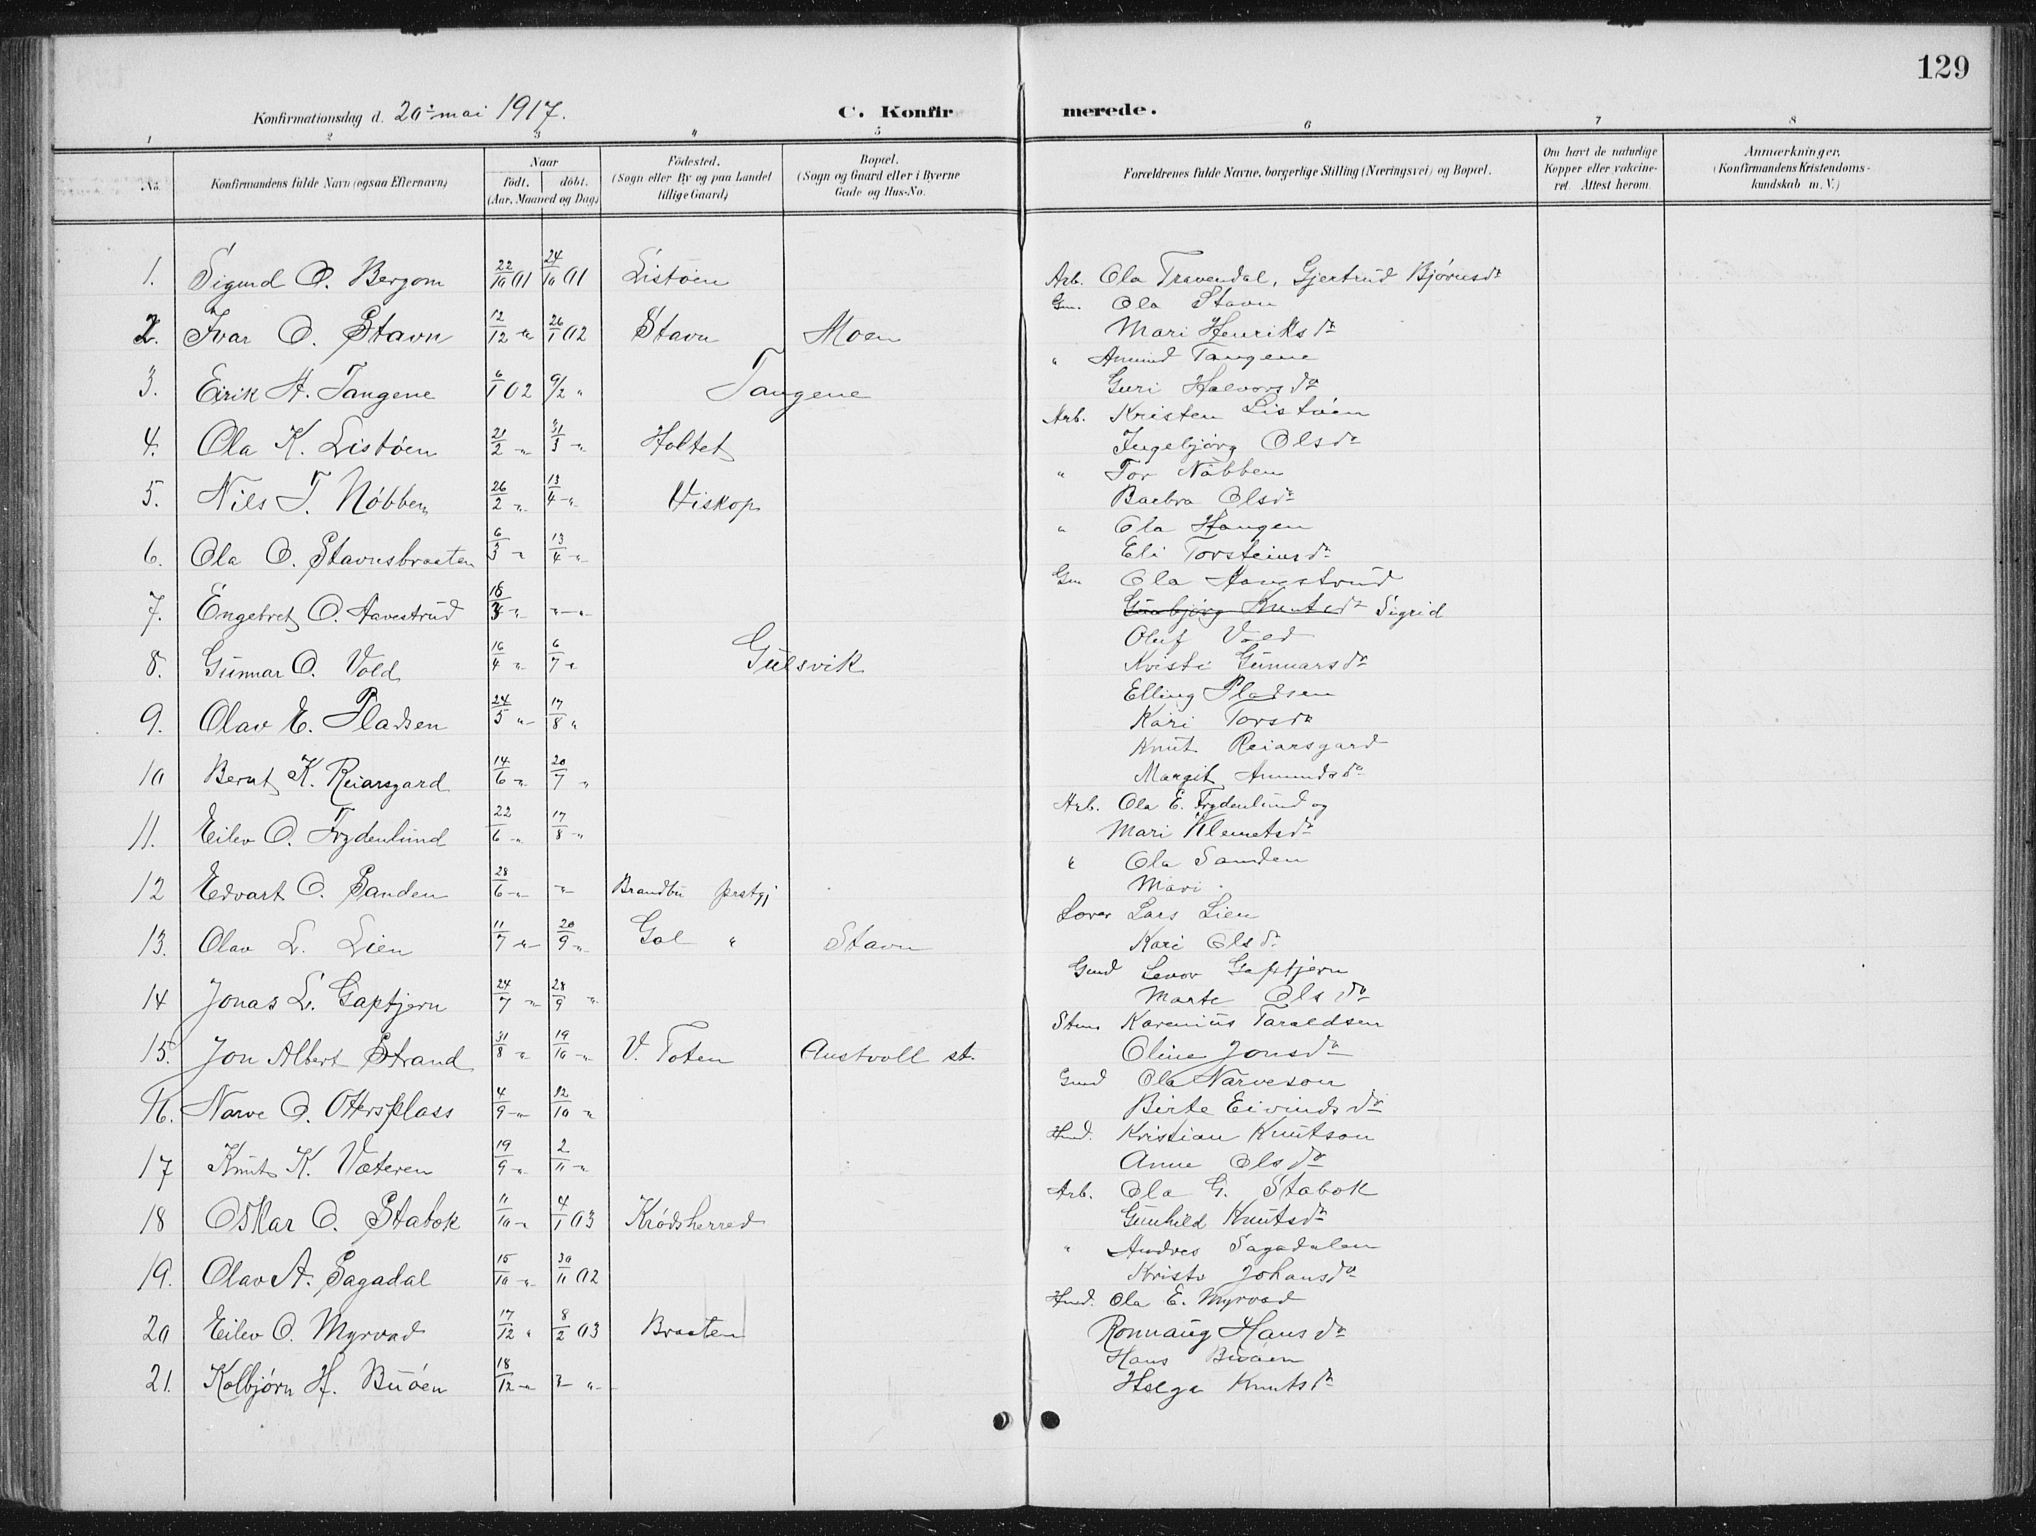 129
Konfirmationsdag d. 20 mai 1917. C. Konfirmerede.
1 2 3 4 5 6 7 8
No. Konfirmandens fulde Navn (ogsaa Efternavn) Naar født. døbt. (Aar, Maaned og Dag) Fødested. (Sogn eller By og paa Landet tillige Gaard) Bopæl. (Sogn og Gaard eller i Byerne Gade og Hus-No. Forældrenes fulde Navne, borgerlige Stilling (Næringsvei) og Bopæl. Om havt de naturlige Kopper eller vakcineret. Attest herom. Anmærkninger. (Konfirmandens Kristendomskundskab m. V.)
1. Sigurd O. Bergom 22/10 01 24/10 01 Listøen Arb. Ola Travendal, Gjertrud Bjørnsdr
2. Ivar O. Stavn 12/12 " 26/1 02 Stavn Moen Gm. Ola Stavn
Mari Henriksdr
3. Eirik A. Tangene 6/1 02 9/2 " Tangene " Amund Tangene
Guri Halvorsdr
4. Ola K. Listøen 21/2 " 31/3 " Holtet Arb. Kristen Listøen
Ingebjørg Olsdr
5. Nils T. Nøbben 26/2 " 13/4 " Viskop " Tor Nøbben
Barbra Olsdr
6. Ola O. Stavnsbraaten 6/3 " 13/4 " " Ola Haugen
Eli Torsteinsdr
7. Engebret O. Aavestrud 16/3 " " " Gm
Knutsdr Sigrid
8. Gunnar O. Vold 16/4 " 6/7 " Gulsvik Oluf Vold
Kristi Gunnarsdr
9. Olav E. Pladsen 24/5 " 17/8 " Elling Pladsen
Kari Torsdr
10 Bernt K. Reiarsgard 14/6 " 20/7 " Knut Reiarsgard
Margit Amundsdr
11. Eilev O. Frydenlund 22/6 " 17/8 " Arb. Ola E. Frydenlund og
Mari Klemetsdr
12 Edvart O. Sanden 28/6 " " Brandbu prstgj " Ola Sanden
Mari
13. Olav L. Lien 11/7 " 20/9 " Gol " Stavn Lars Lien
Kari Olsdr
14 Jonas L. Gaptjern 24/7 " 28/9 " Gmd Levor Gaptjern
Marte Olsdr
15. Jon Albert Strand 31/8 " 19/10 " V. Toten Austvoll st. Karenius Taraldsen
Oline Jonsdr
16. Narve O. Ottersplass 4/9 " 12/10 " Gmd Ola Narveson
Birte Eivindsdr
17 Knut K. Væteren 19/9 " 2/11 " Hmd. Kristian Knutson
Anne Olsdr
18 Oskar O. Stabok 11/10 " 4/1 03 Krødsherred Arb. Ola G. Stabok
Gunhild Knutsdr
19. Olav A. Sagadal 15/10 " 30/11 02 " Andres Sagadalen
Kristv Johansdr
20 Eilev O. Myrvad 17/12 " 8/2 03 Braaten Hmd. Ola E. Myrvad
Ronnaug Hansdr
21. Kolbjørn H. Buøen 18/12 " " " Hans Buøen
Helga Knutsdr